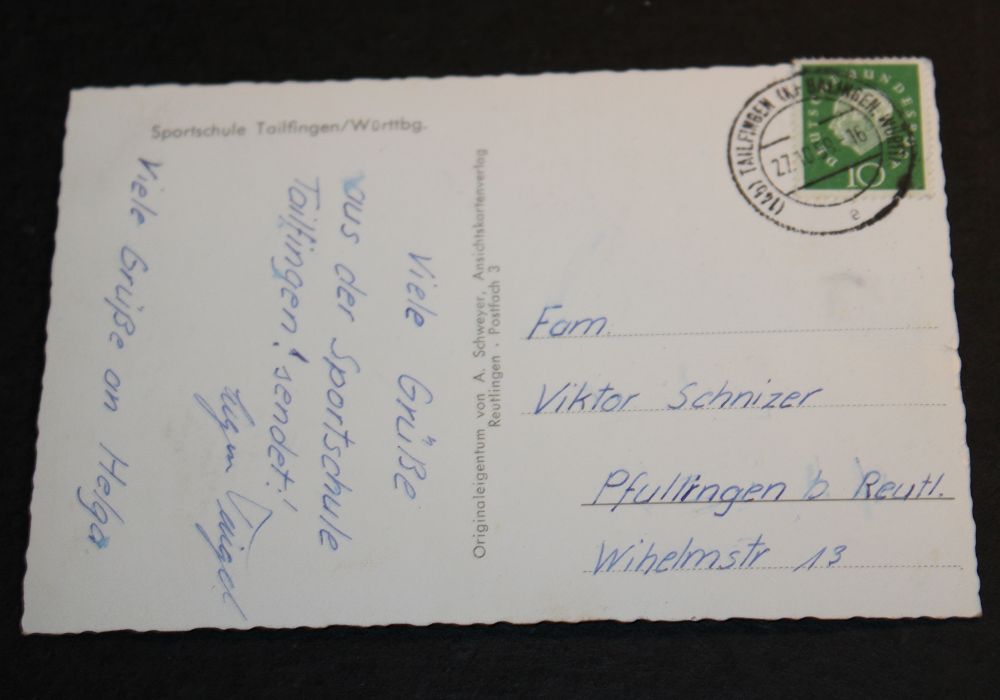 Sportschule Tailfingen/Württbg.
Viele Grüße
aus der Sportschule
Tailfingen! sendet!
Viele Grüße an Helga
Originaleigentum von A. Schweyer, Ansichtskartenverlag
Reutlingen · Postfach 3
(14b) TAILFINGEN (Kr. BALINGEN, WÜRTT)
27.10. -16
e
DEUTSCHE BUNDESPOST
10
Fam.
Viktor Schnizer
Pfullingen b. Reutl.
Wihelmstr 13